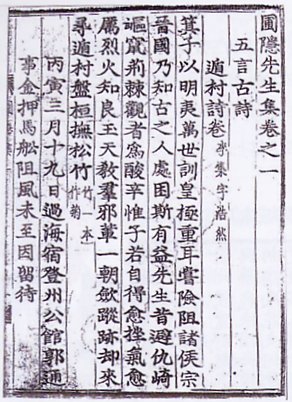 圃隱先生集卷之一
五言古詩
遁村詩卷 李集字浩然
箕子以明夷萬世訓皇極重耳嘗險阻諸侯宗
晉國乃知古之人處困斯有益先生昔避仇崎
嶇竄荊棘觀者爲酸辛惟子若自得愈挫氣愈
厲烈火知良玉天敎羣邪輩一朝斂蹤跡却來
尋遁村盤桓撫松竹 竹一本作菊
丙寅三月十九日過海宿登州公館郭通
事金押馬舩阻風未至因留待